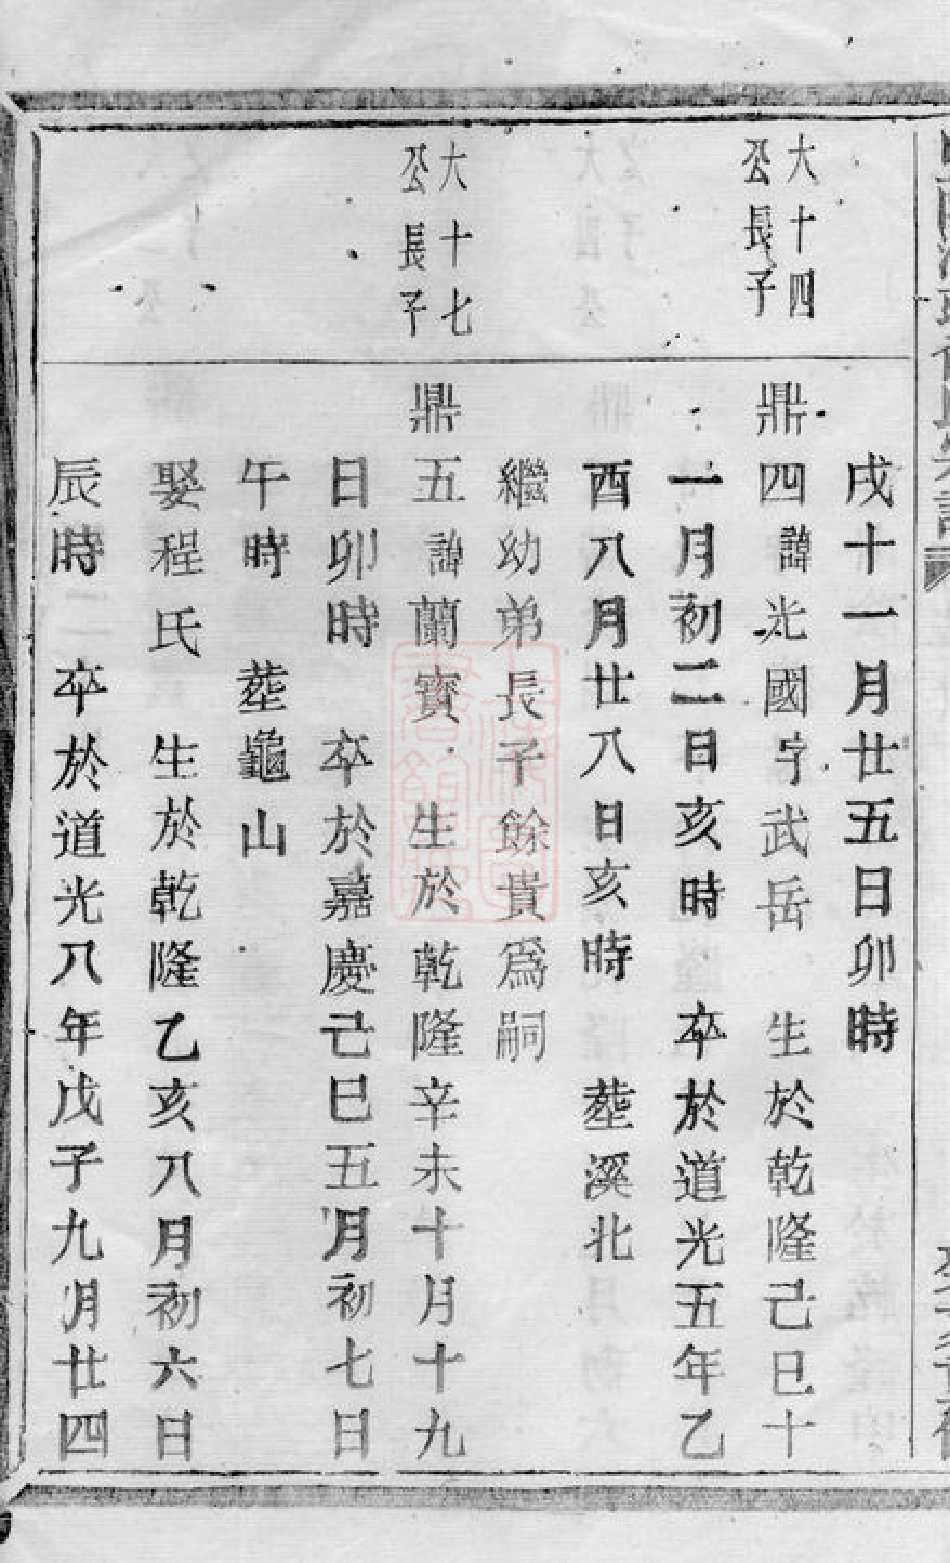 戌十一月廿五日卯時
大十四
公長子
鼎四諱光國字武岳　生於乾隆己巳十
一月初二日亥時　卒於道光五年乙
酉八月廿八日亥時　塟溪北
繼幼弟長子餘貴爲嗣
大十七
公長子
鼎五諱蘭寳　生於乾隆辛未十月十九
日卯時　卒於嘉慶己巳五月初七日
午時　塟龜山
娶程氏　生於乾隆乙亥八月初六日
辰時　卒於道光八年戊子九月廿四